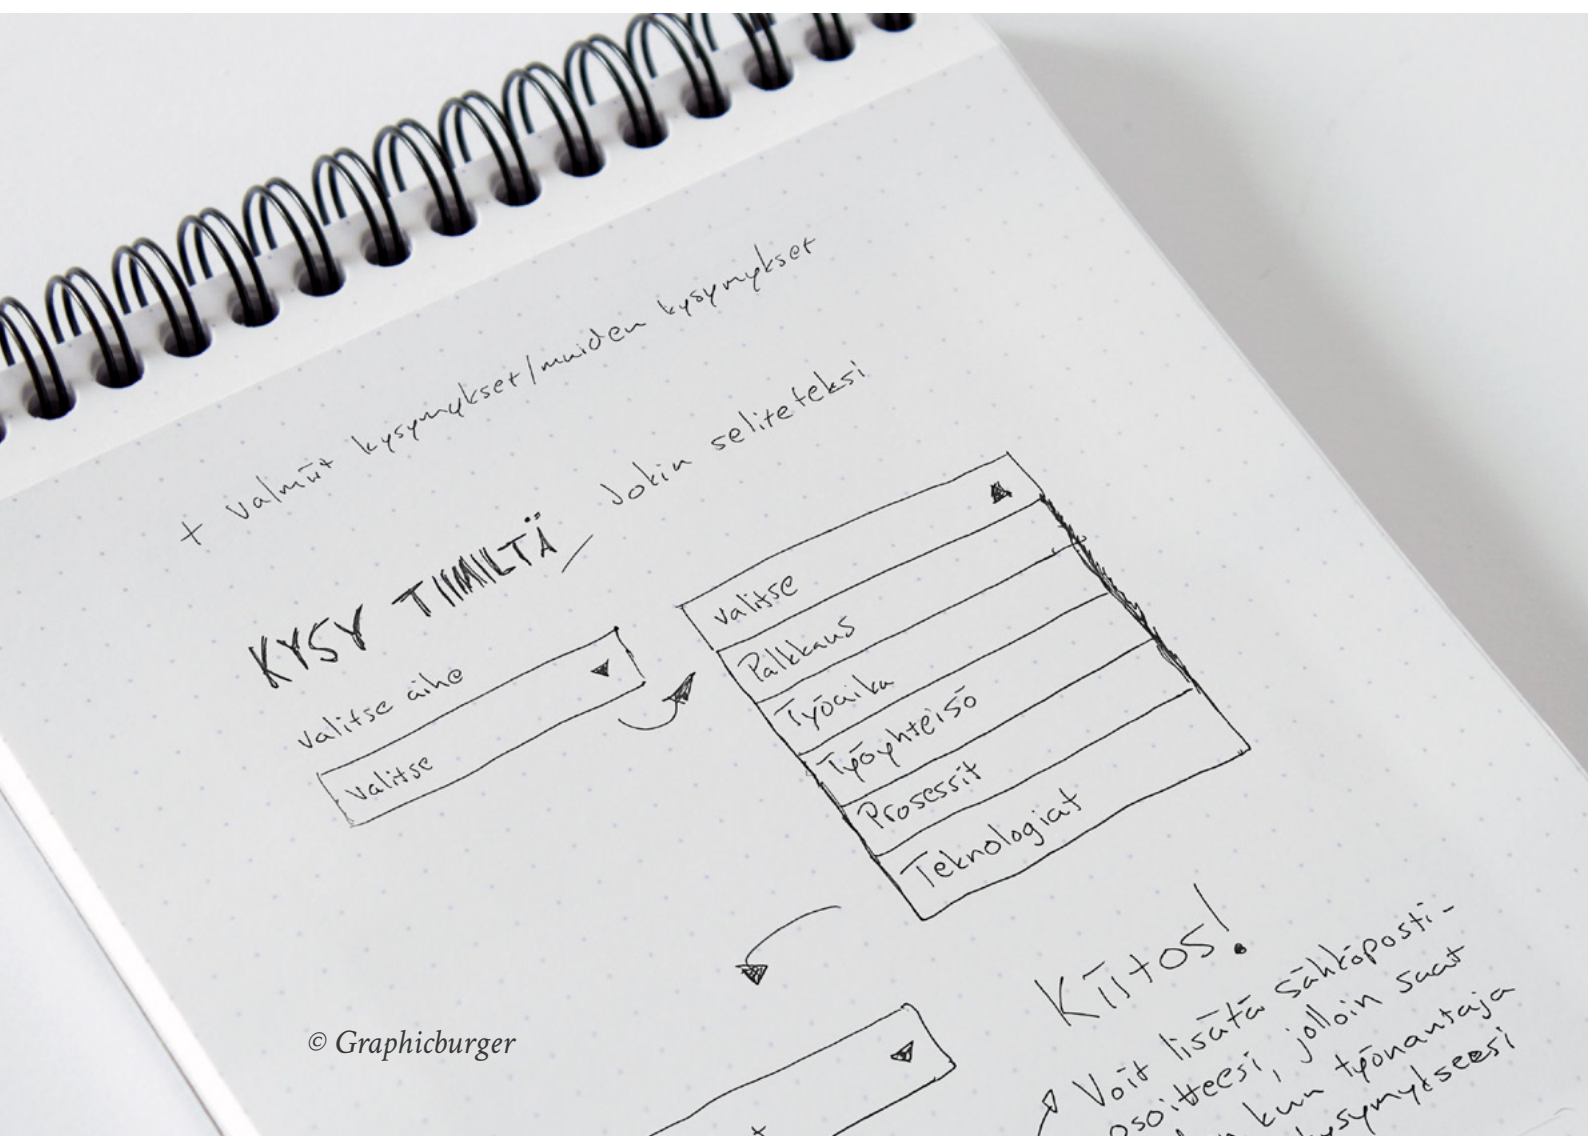 + valmiit kysymykset/muiden kysymykset
Jokin seliteteksi
KYSY TIIMILTÄ
Valitse aihe
Valitse
Valitse
Palkkaus
Työaika
Työyhteisö
Prosessit
Teknologiat
Kiitos!
Voit lisätä sähköposti-
osoitteesi, jolloin saat
kun työnantaja
kysymykseesi
© Graphicburger